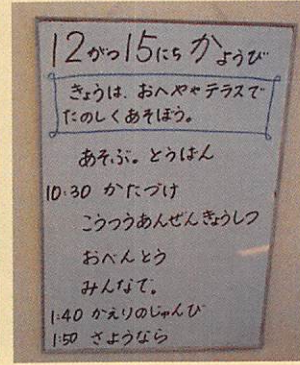 12がつ15にち かようび
きょうは、おへややテラスで
たのしくあそぼう。
あそぶ。とうはん
10:30 かたづけ
こうつうあんぜんきょうしつ
おべんとう
みんなで。
1:40 かえりのじゅんび
1:50 さようなら